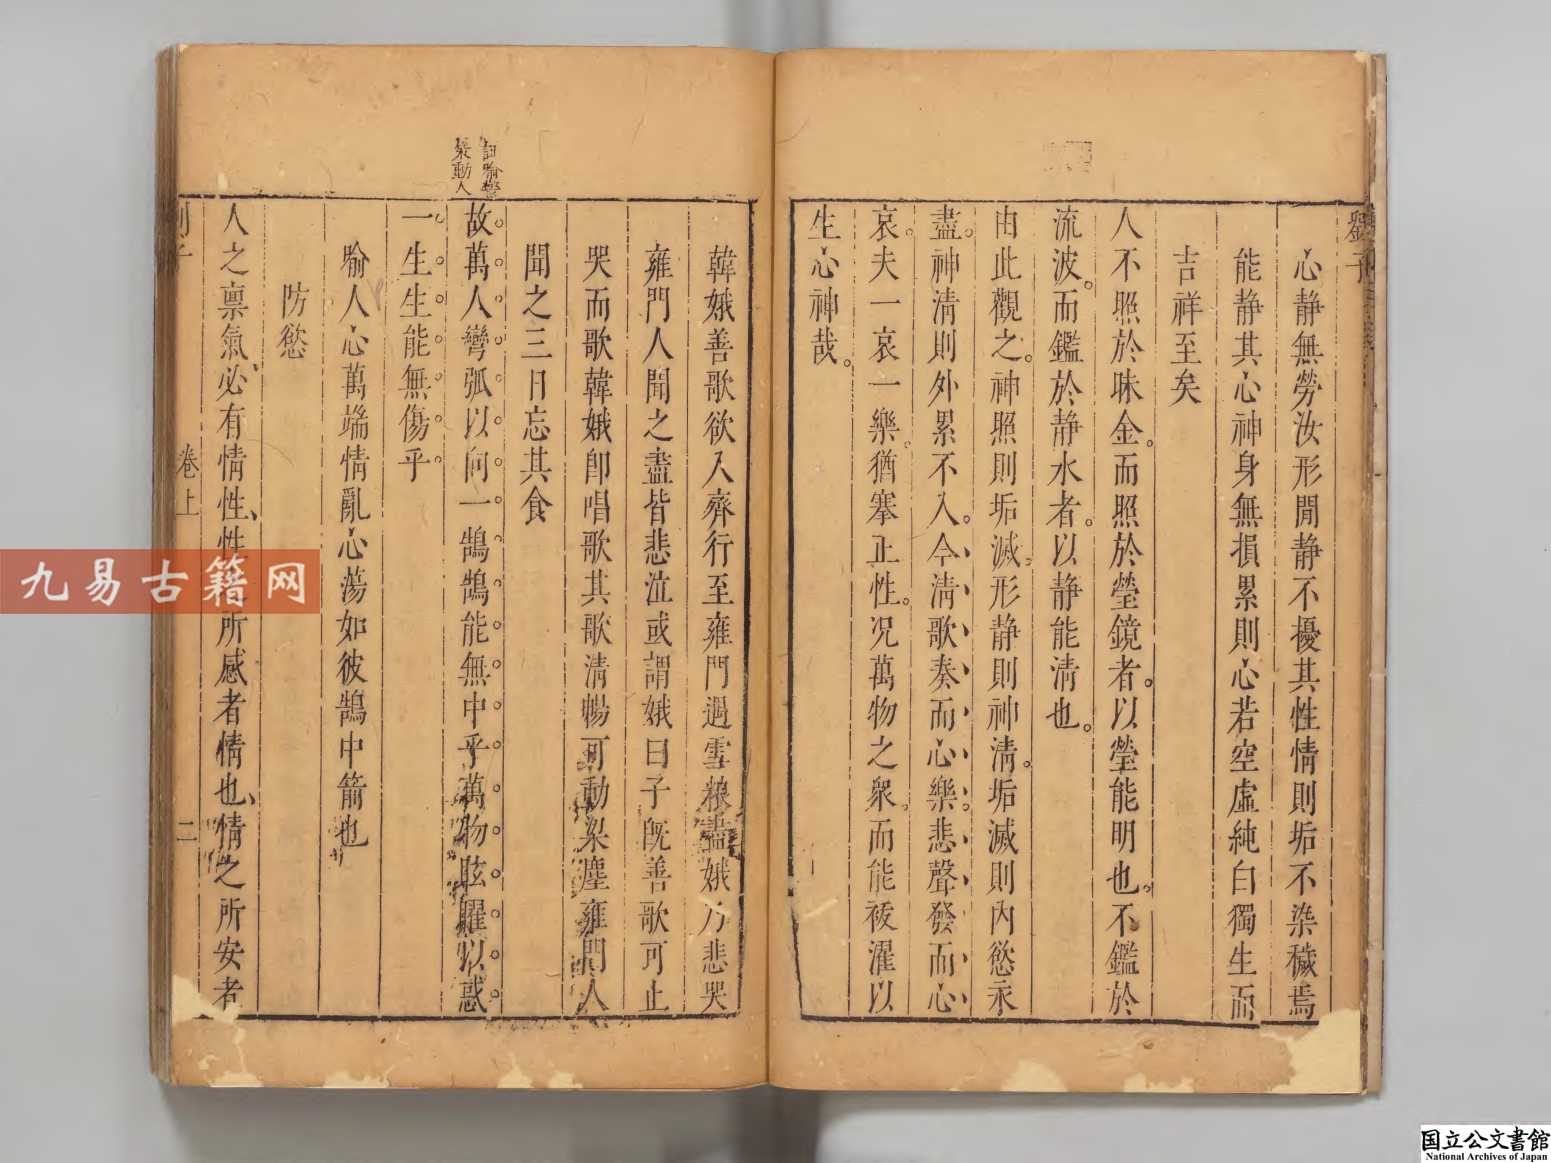 劉子
心靜無勞汝形閒靜不擾其性情則垢不染穢焉
能靜其心神身無損累則心若空虛純白獨生而
吉祥至矣
人不照於昧金。而照於瑩鏡者。以瑩能明也。不鑑於
流波。而鑑於靜水者。以靜能清也。
由此觀之。神照則垢滅。形靜則神清。垢滅則內慾永
盡。神清則外累不入。今清歌奏而心樂。悲聲發而心
哀。夫一哀一樂。猶搴正性。况萬物之衆。而能祓濯以
生心神哉。
韓娥善歌欲入齊行至雍門過雪粮盡娥乃悲哭
雍門人聞之盡皆悲泣或謂娥曰子旣善歌可止
哭而歌韓娥卽唱歌其歌清暢可動梁塵雍門人
聞之三日忘其食
故萬人彎弧以向一鵠鵠能無中乎萬物眩曜以惑
一生生能無傷乎
喻人心萬端情亂心蕩如彼鵠中箭也
防慾
人之禀氣必有情性性所感者情也情之所安者
卷上
二
九易古籍网
国立公文書館
National Archives of Japan